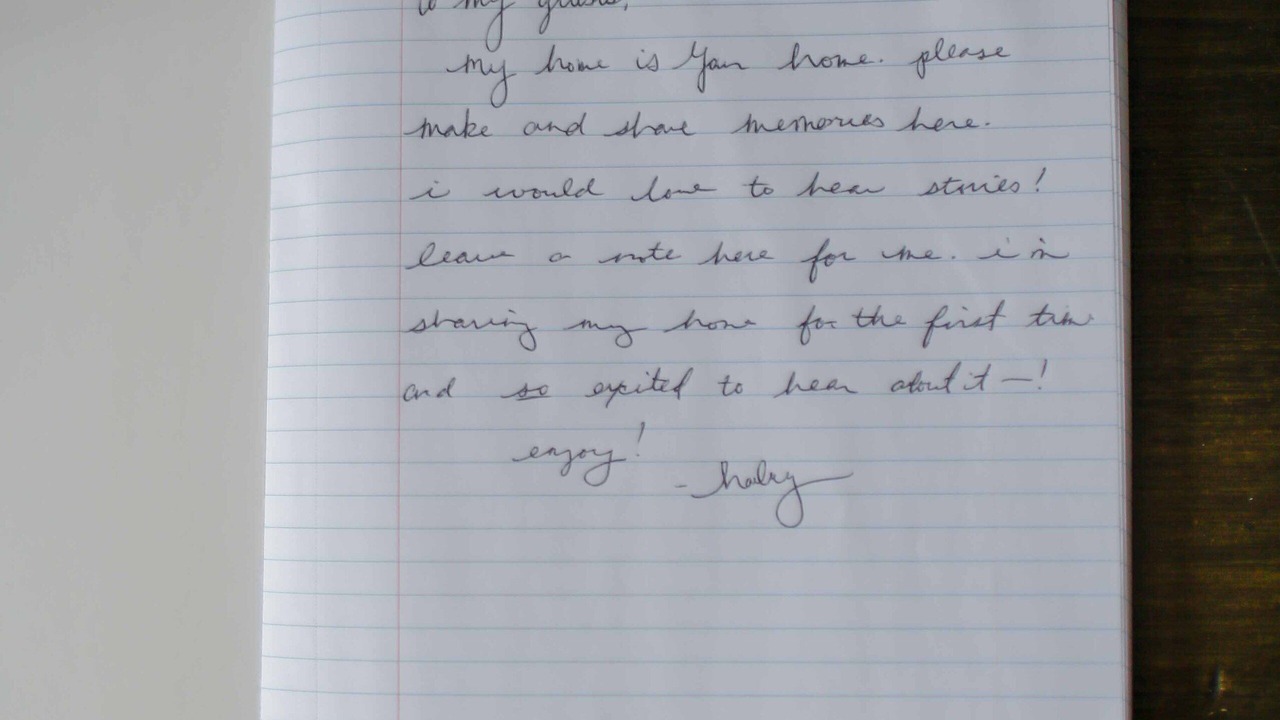 to my guests,
my home is your home. please
make and share memories here.
i would love to hear stories!
leave a note here for me. i'm
sharing my home for the first time
and so excited to hear about it —!
enjoy!